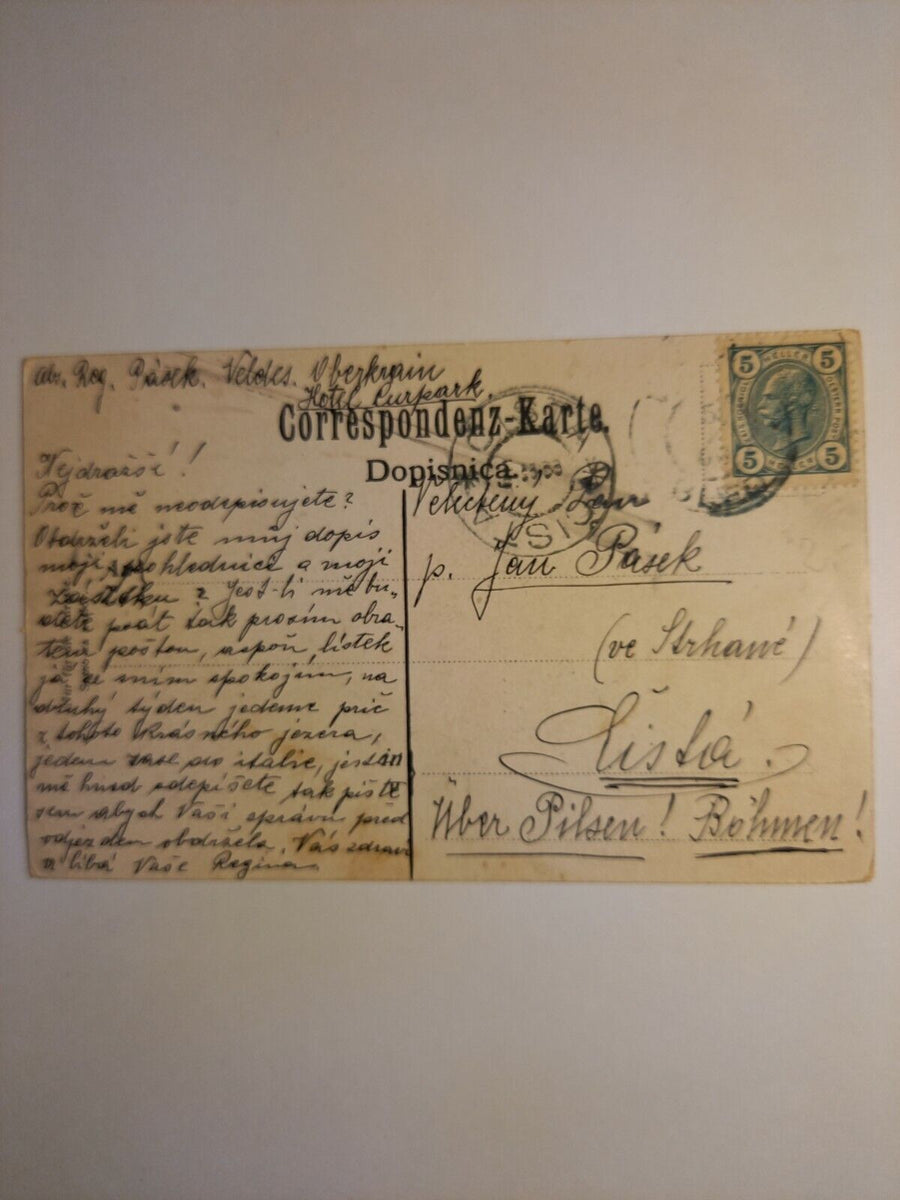 adr. Reg. Pásek. Veldes. Oberkrain
Hotel Curpark.
Correspondenz-Karte.
Dopisnica.
Nejdražší!
Proč mě neodepisujete?
Obdrželi jste můj dopis
moji pohlednici a moji
zásilku? Jest-li mě bu-
dete psát tak prosím obra-
tem poštou, aspoň lístek
já se s ním spokojím, na
druhý týden jedeme prič
z tohoto krásného jezera,
jedem zase do itálie, jestli
mě hned odepíšete tak pište
sem abych Vaší správu před
odjezdem obdržela. Vás zdraví
a líbá Vaše Regina
Velectěný Pan
p. Jan Pásek
(ve Strhané)
Čistá.
Über Pilsen! Böhmen!
5 HELLER 5
5 HELLER 5